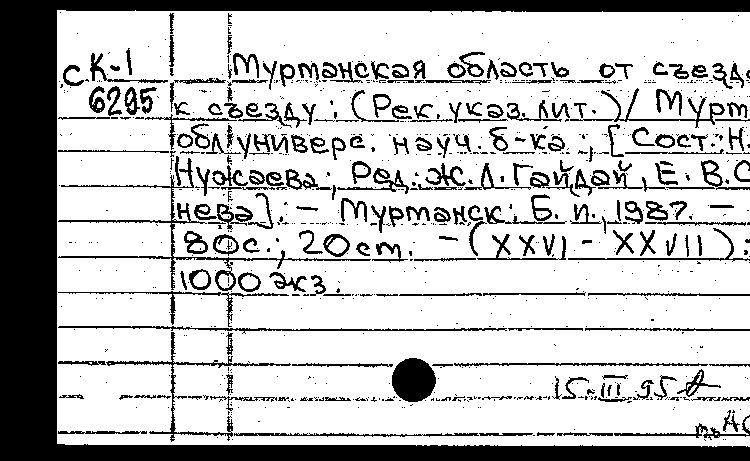 СК-1 Мурманская область от съезда
6295 к съезду : (Рек. указ. лит.) / Мурм
обл. универс. науч. б-ка ; [Сост.: Н.
Нужаева ; Ред.: Ж.Л. Гайдай, Е.В. С
нева]. — Мурманск : Б. и., 1987. —
80 с. ; 20 см. — (XXVI - XXVII) :
1000 экз.
15.III 95